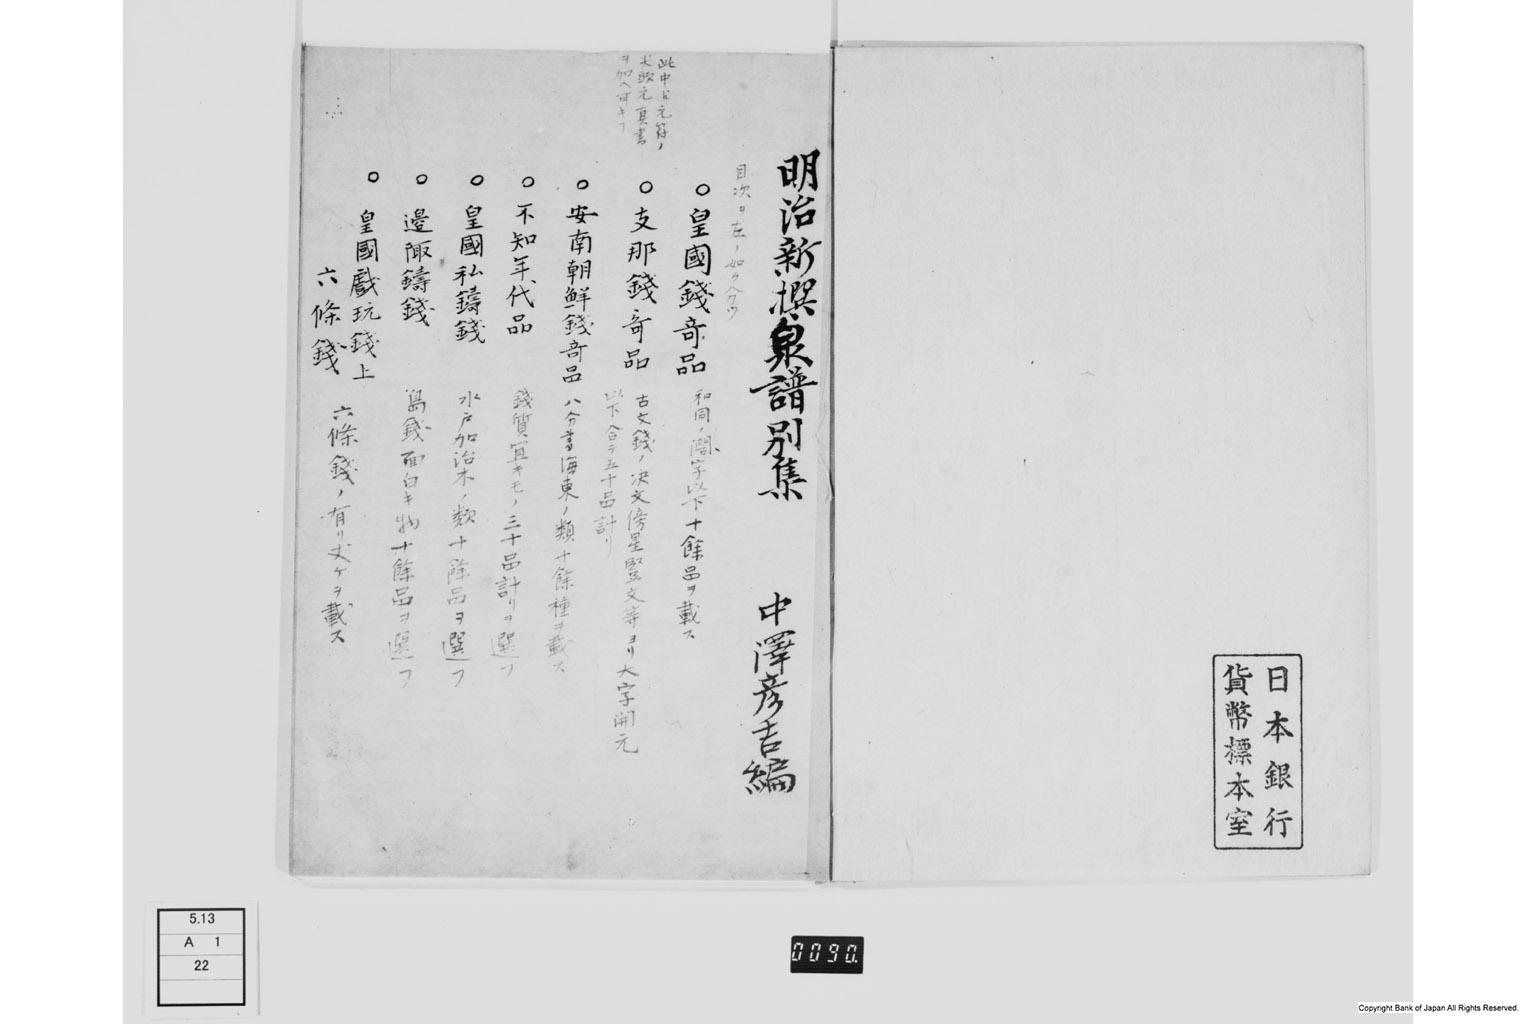 日本銀行
貨幣標本室
明治新撰泉譜別集
中澤彦吉編
目次ヲ左ノ如ク
○皇國錢竒品
和同ノ字以下十餘品ヲ載ス
○支那錢竒品
古文錢ノ決文傍星竪文等ヨリ大字開元
以下合テ五十品計リ
○安南朝鮮錢竒品
八分書海東ノ類十餘種ヲ載ス
○不知年代品
錢質冝キモノ三十品計リヲ選フ
○皇國私鑄錢
水戸加治木ノ類十餘品ヲ選フ
○邉陬鑄錢
島錢面白キ物十餘品ヲ選フ
○皇國戲玩錢上
六條錢
六條錢ノ有リ丈ケヲ載ス
此中ヘ元符ノ
元真書
ヲ加ヘ可キフ
5.13
A 1
22
0090.
Copyright Bank of Japan All Rights Reserved.